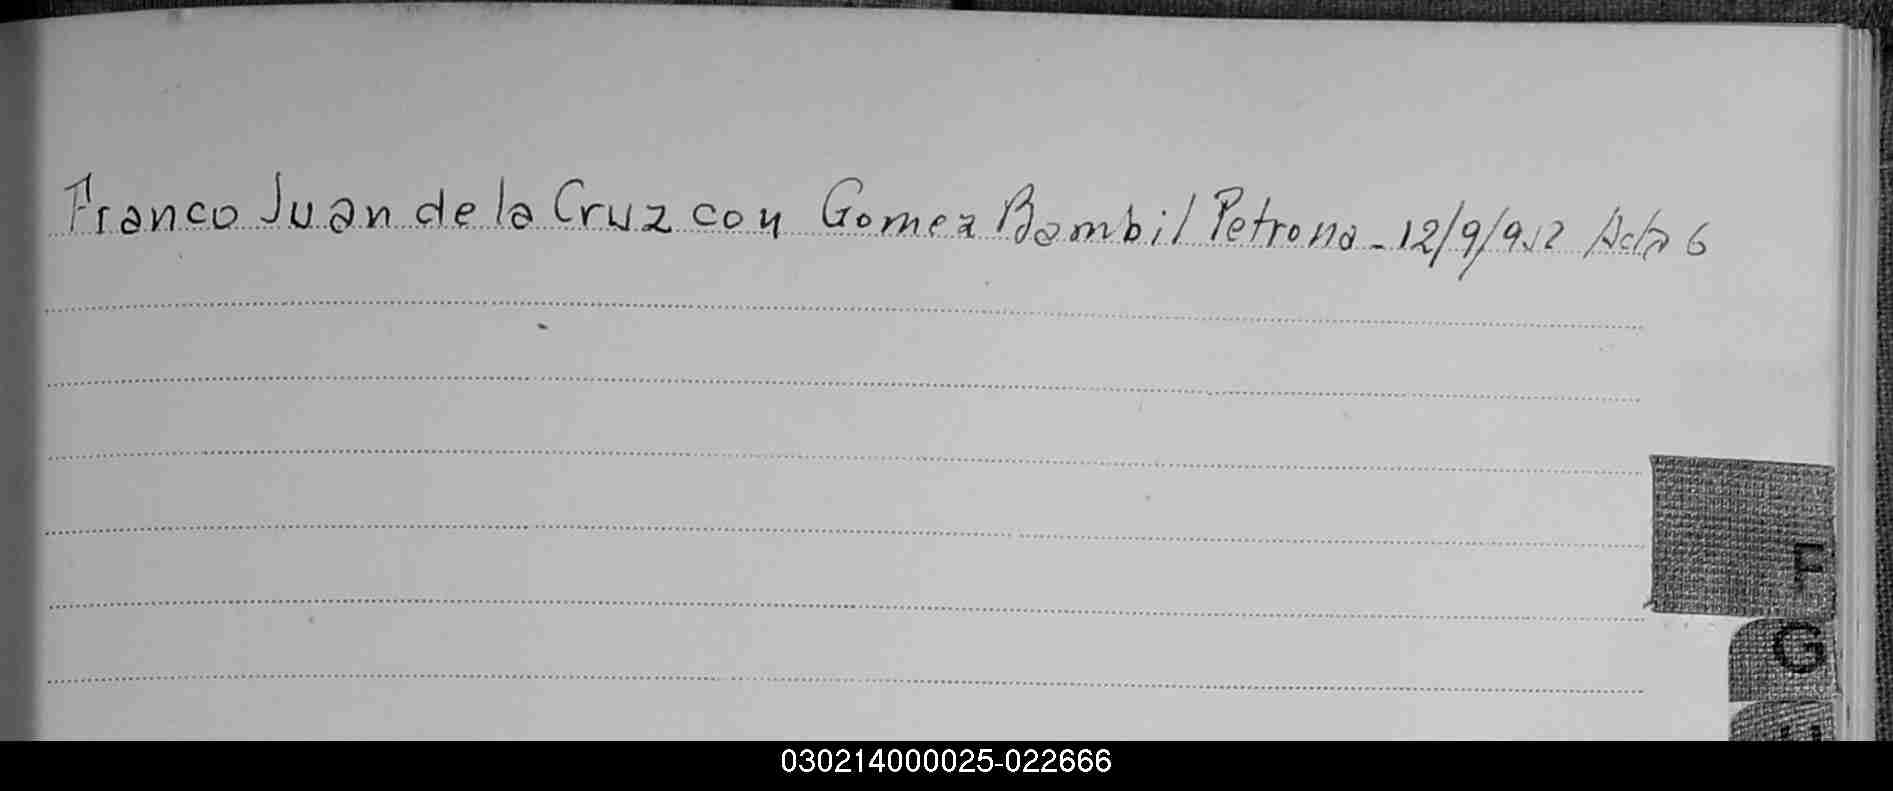 Franco Juan de la Cruz con Gomez Bambil Petrona - 12/9/912 Acta 6
F
G
030214000025-022666